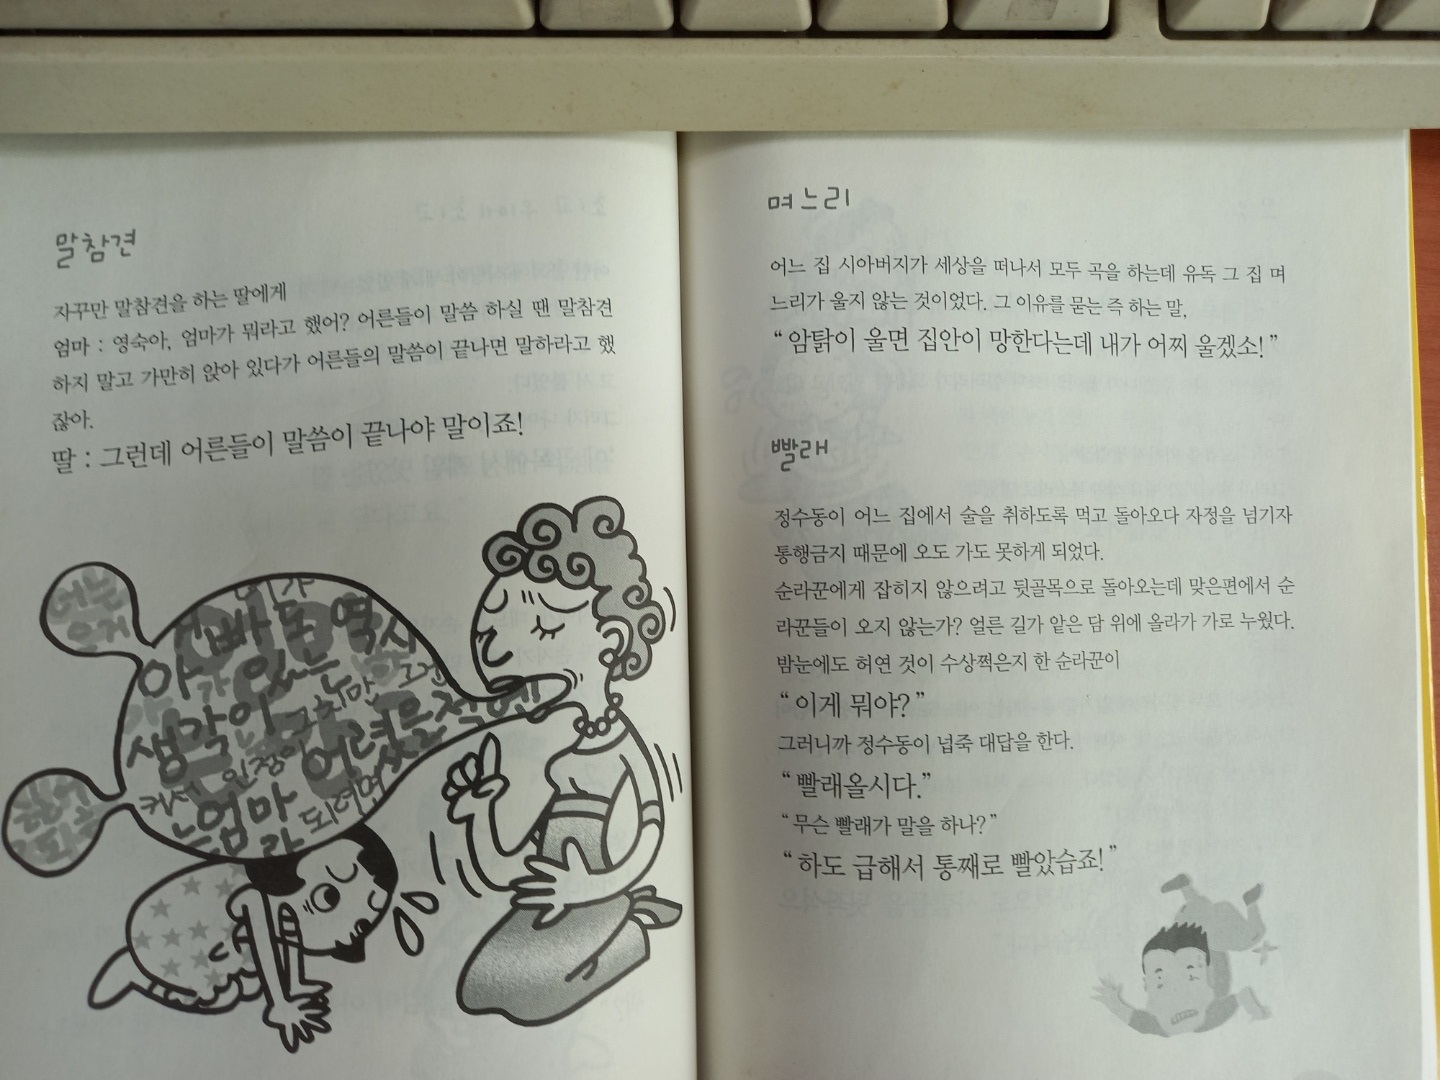 말참견
자꾸만 말참견을 하는 딸에게
엄마 : 영숙아, 엄마가 뭐라고 했어? 어른들이 말씀 하실 땐 말참견
하지 말고 가만히 앉아 있다가 어른들의 말씀이 끝나면 말하라고 했
잖아.
딸 : 그런데 어른들이 말씀이 끝나야 말이죠!
아빠도 역시
있는
생각인
어렸을 적엔
엄마
되려면
며느리
어느 집 시아버지가 세상을 떠나서 모두 곡을 하는데 유독 그 집 며
느리가 울지 않는 것이었다. 그 이유를 묻는 즉 하는 말,
“암탉이 울면 집안이 망한다는데 내가 어찌 울겠소!”
빨래
정수동이 어느 집에서 술을 취하도록 먹고 돌아오다 자정을 넘기자
통행금지 때문에 오도 가도 못하게 되었다.
순라꾼에게 잡히지 않으려고 뒷골목으로 돌아오는데 맞은편에서 순
라꾼들이 오지 않는가? 얼른 길가 얕은 담 위에 올라가 가로 누웠다.
밤눈에도 허연 것이 수상쩍은지 한 순라꾼이
“이게 뭐야?”
그러니까 정수동이 넙죽 대답을 한다.
“빨래올시다.”
“무슨 빨래가 말을 하나?”
“하도 급해서 통째로 빨았습죠!”